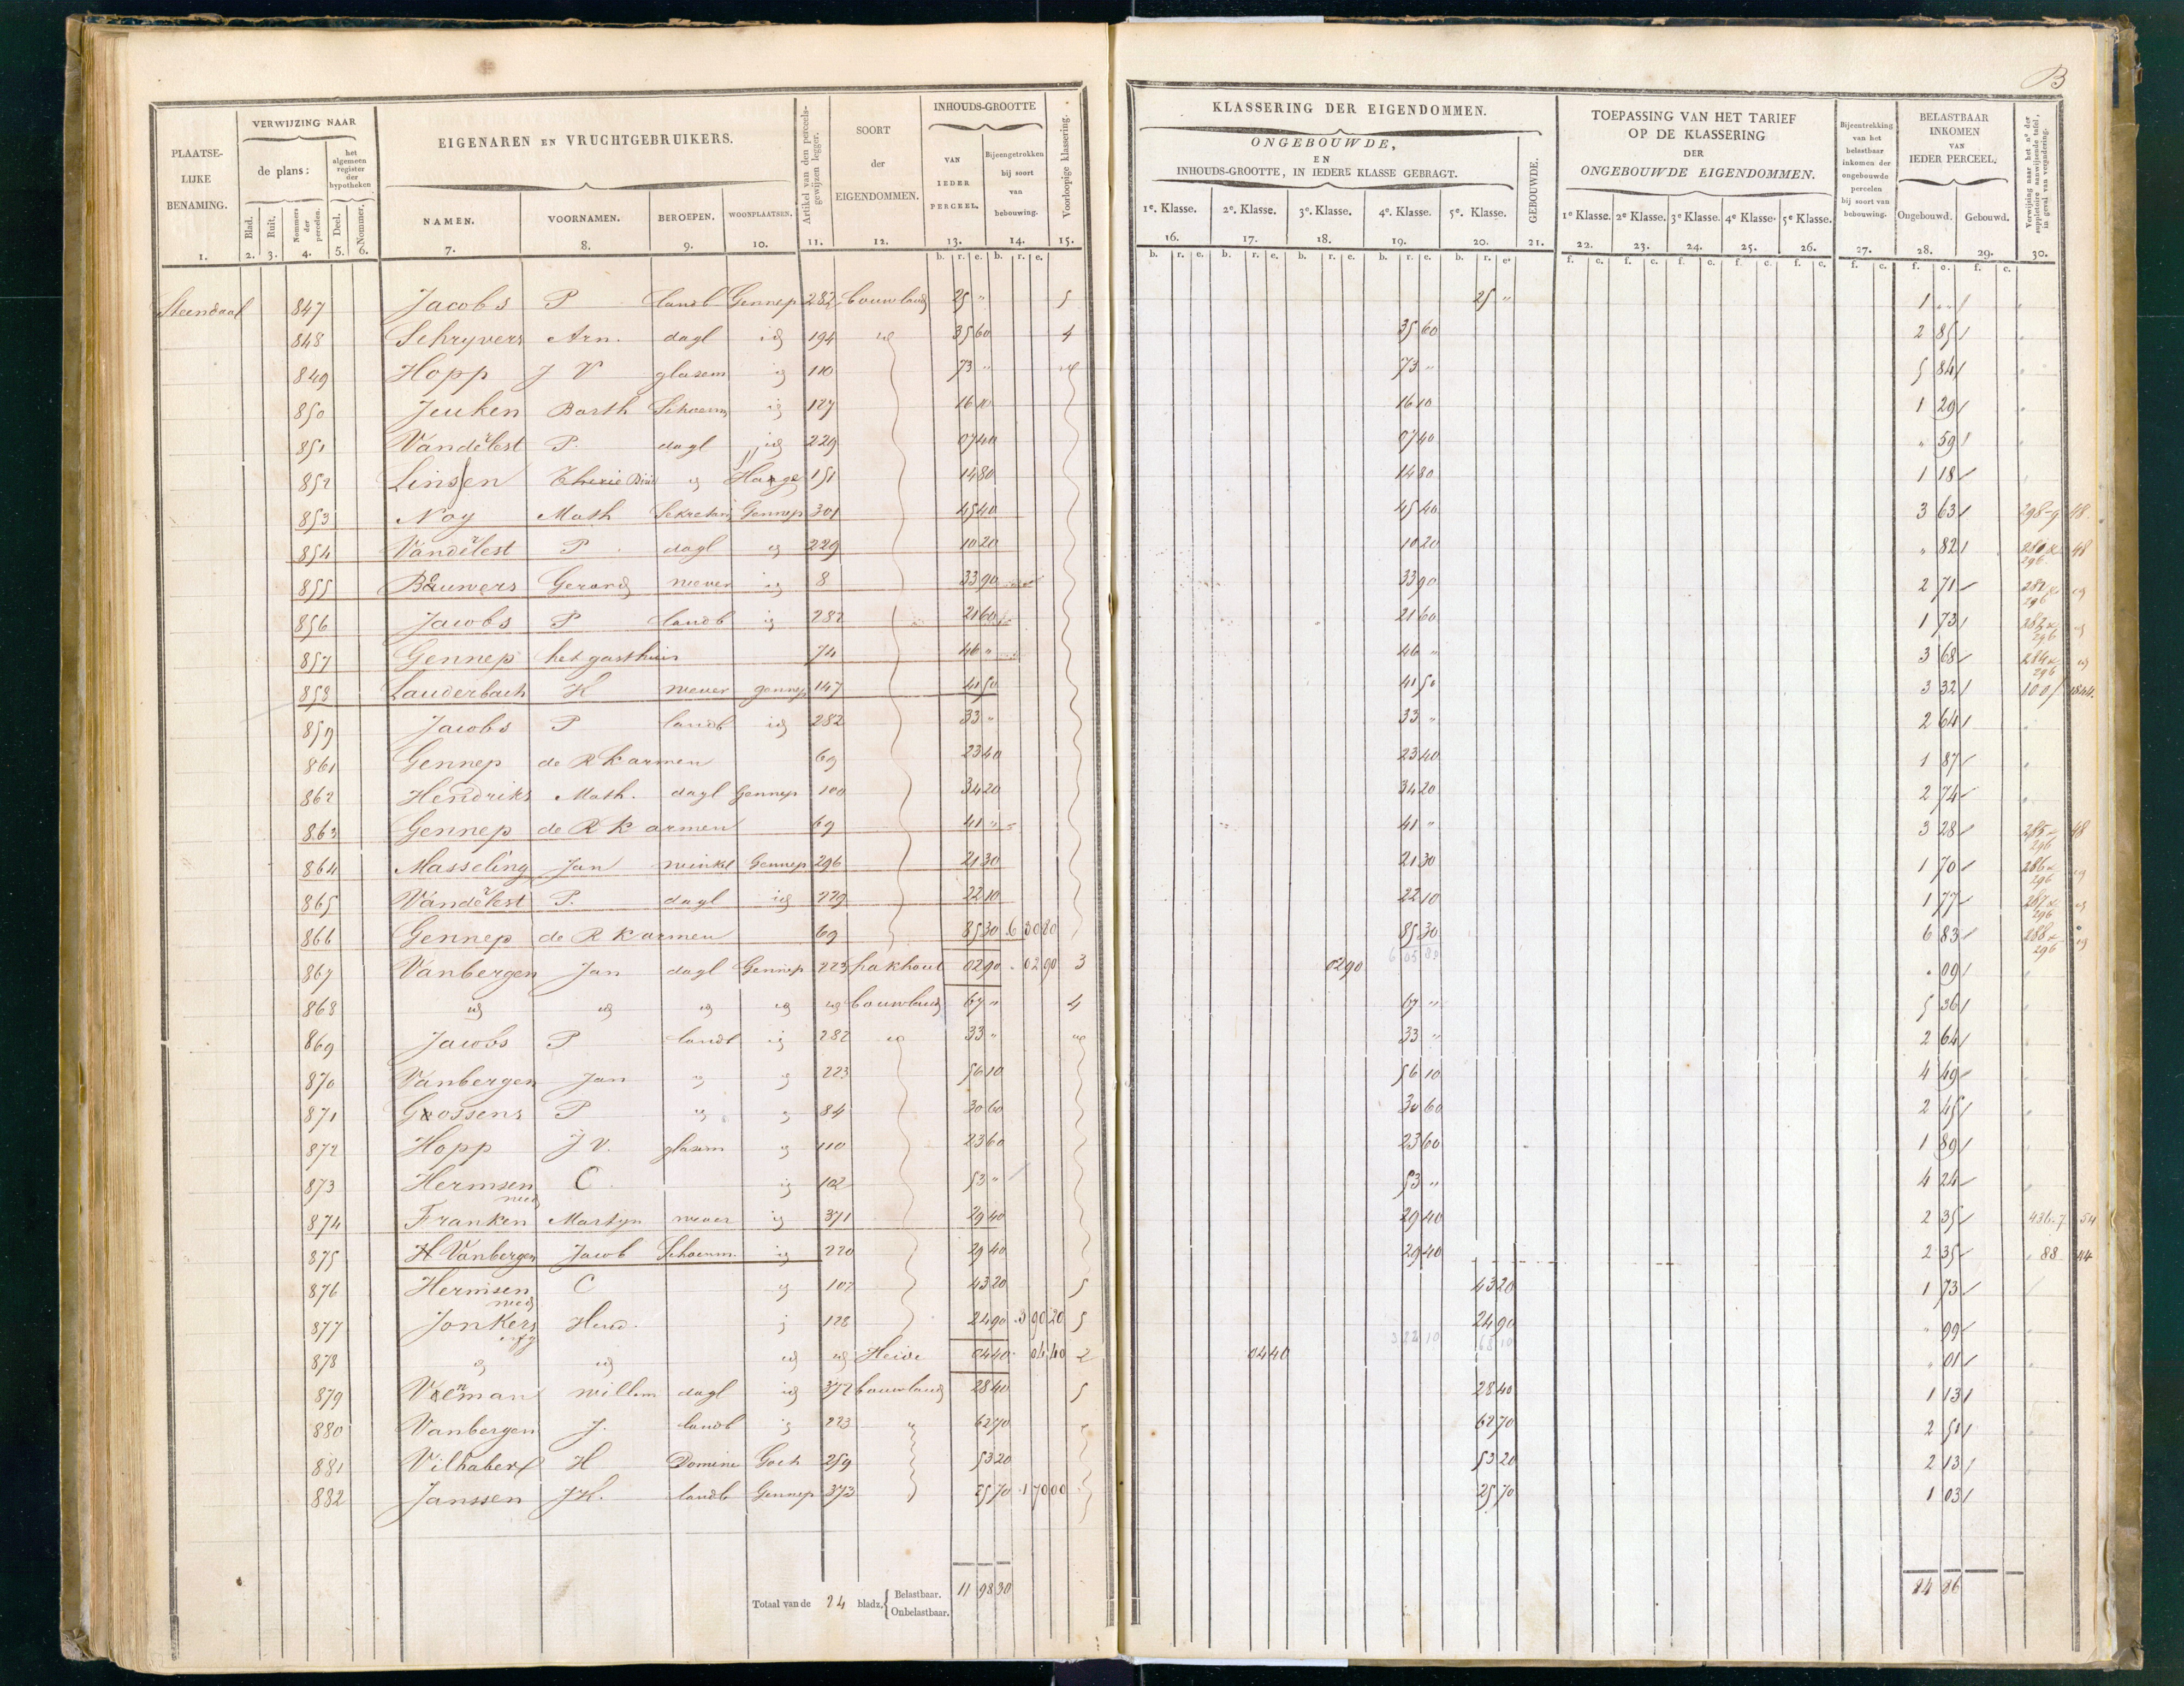 B
PLAATSE-LIJKE BENAMING.
VERWIJZING NAAR
de plans:
Blad. Ruit. Nommers der perceelen.
het algemeen register der hypotheken
Deel. Nommer.
EIGENAREN EN VRUCHTGEBRUIKERS.
NAMEN. VOORNAMEN. BEROEPEN. WOONPLAATSEN.
Artikel van den perceels-gewijzen legger.
SOORT der EIGENDOMMEN.
INHOUDS-GROOTTE
VAN IEDER PERCEEL.
Bijeengetrokken bij soort van bebouwing.
Voorloopige klassering.
KLASSERING DER EIGENDOMMEN.
ONGEBOUWDE, EN INHOUDS-GROOTTE, IN IEDERE KLASSE GEBRAGT.
1e. Klasse. 2e. Klasse. 3e. Klasse. 4e. Klasse. 5e. Klasse.
GEBOUWDE.
TOEPASSING VAN HET TARIEF OP DE KLASSERING DER ONGEBOUWDE EIGENDOMMEN.
1e Klasse. 2e Klasse. 3e Klasse. 4e Klasse. 5e Klasse.
Bijeentrekking van het belastbaar inkomen der ongebouwde percelen bij soort van bebouwing.
BELASTBAAR INKOMEN VAN IEDER PERCEEL.
Ongebouwd. Gebouwd.
Verwijzing naar het no der suppletoire aanwijzende tafel, in geval van verandering.
1. 2. 3. 4. 5. 6. 7. 8. 9. 10. 11. 12. 13. 14. 15. 16. 17. 18. 19. 20. 21. 22. 23. 24. 25. 26. 27. 28. 29. 30.
Steendaal 847 Jacobs P landb Gennep 282 bouwland 25 " 5 25 " 1 "
848 Schryvers Arn. dagl id 194 id 35 60 4 35 60 2 85
849 Hopp J V glasem id 110 73 " id 73 " 5 84
850 Jeuken Barth Schoenm id 127 16 10 16 10 1 29
851 Vandelest P. dagl id 229 07 40 07 40 " 59
852 Linssen id 151 14 80 14 80 1 18
853 Noy Math Sekretaris Gennep 301 45 40 45 40 3 63 298-9 48
854 Vandelest P. dagl id 229 10 20 10 20 " 82 296 48
855 Bauwers Gerard wever id 8 33 90 33 90 2 71 296 id
856 Jacobs P landb id 282 21 60 21 60 1 73 282 296 id
857 Gennep het gasthuis 74 46 " 46 " 3 68 284 296 id
858 Lauderbach K wever gennep 147 41 50 41 50 3 32 100 1844.
859 Jacobs P landb id 282 33 " 33 " 2 64
861 Gennep de R K armen 69 23 40 23 40 1 87
862 Hendriks Math. dagl Gennep 100 34 20 34 20 2 74
863 Gennep de R K armen 69 41 " 41 " 3 28 285 296 48
864 Masseling Jan winkl Gennep 296 21 30 21 30 1 70 286 296 id
865 Vandelest P. dagl id 229 22 10 22 10 1 77 287 296 id
866 Gennep de R K armen 69 85 30 6 30 80 85 30 6 83 288 296 id
6 05 80
867 Vanbergen Jan dagl Gennep 223 hakhout 02 90 . 02 90 3 02 90 " 09
868 id id id id id bouwland 67 " 4 67 " 5 36
869 Jacobs P landb id 282 id 33 " id 33 " 2 64
870 Vanbergen Jan id id 223 56 10 56 10 4 49
871 Goossens P id id 84 30 60 30 60 2 45
872 Hopp J V. glasem id 110 23 60 23 60 1 89
873 Hermsen wed C. id 102 53 " 53 " 4 24
874 Franken Martyn wever id 371 29 40 29 40 2 35 436-7 54
875 H Vanbergen Jacob Schoenm. id 220 29 40 29 40 2 35 88 44
876 Hermsen wed C id 102 43 20 5 43 20 1 73
877 Jonkers Hend. id 128 24 90 3 90 20 5 24 90 " 99
3 22 10 68 10
878 id id id id Heide 04 40 . 04 40 2 04 40 " 01
879 Veeman willem dagl id 372 bouwland 28 40 5 28 40 1 13
880 Vanbergen J. landb id 223 " 62 70 62 70 2 51
881 Vilhaber H Domine Goch 259 53 20 53 20 2 13
882 Janssen J H. landb Gennep 373 25 70 1 70 00 25 70 1 03
Totaal van de 24 bladz. Belastbaar. Onbelastbaar. 11 98 30 84 86